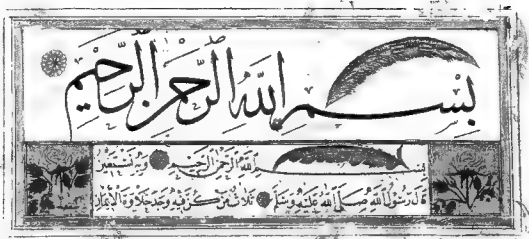 بِسْمِ اللّٰهِ الرَّحْمٰنِ الرَّحِيمِ
بِسْمِ اللّٰهِ الرَّحْمٰنِ الرَّحِيمِ وَبِهِ نَسْتَعِينُ
قَالَ رَسُولُ اللّٰهِ صَلَّى اللّٰهُ عَلَيْهِ وَسَلَّمَ ثَلَاثٌ مَنْ كُنَّ فِيهِ وَجَدَ حَلَاوَةَ الْإِيمَانِ